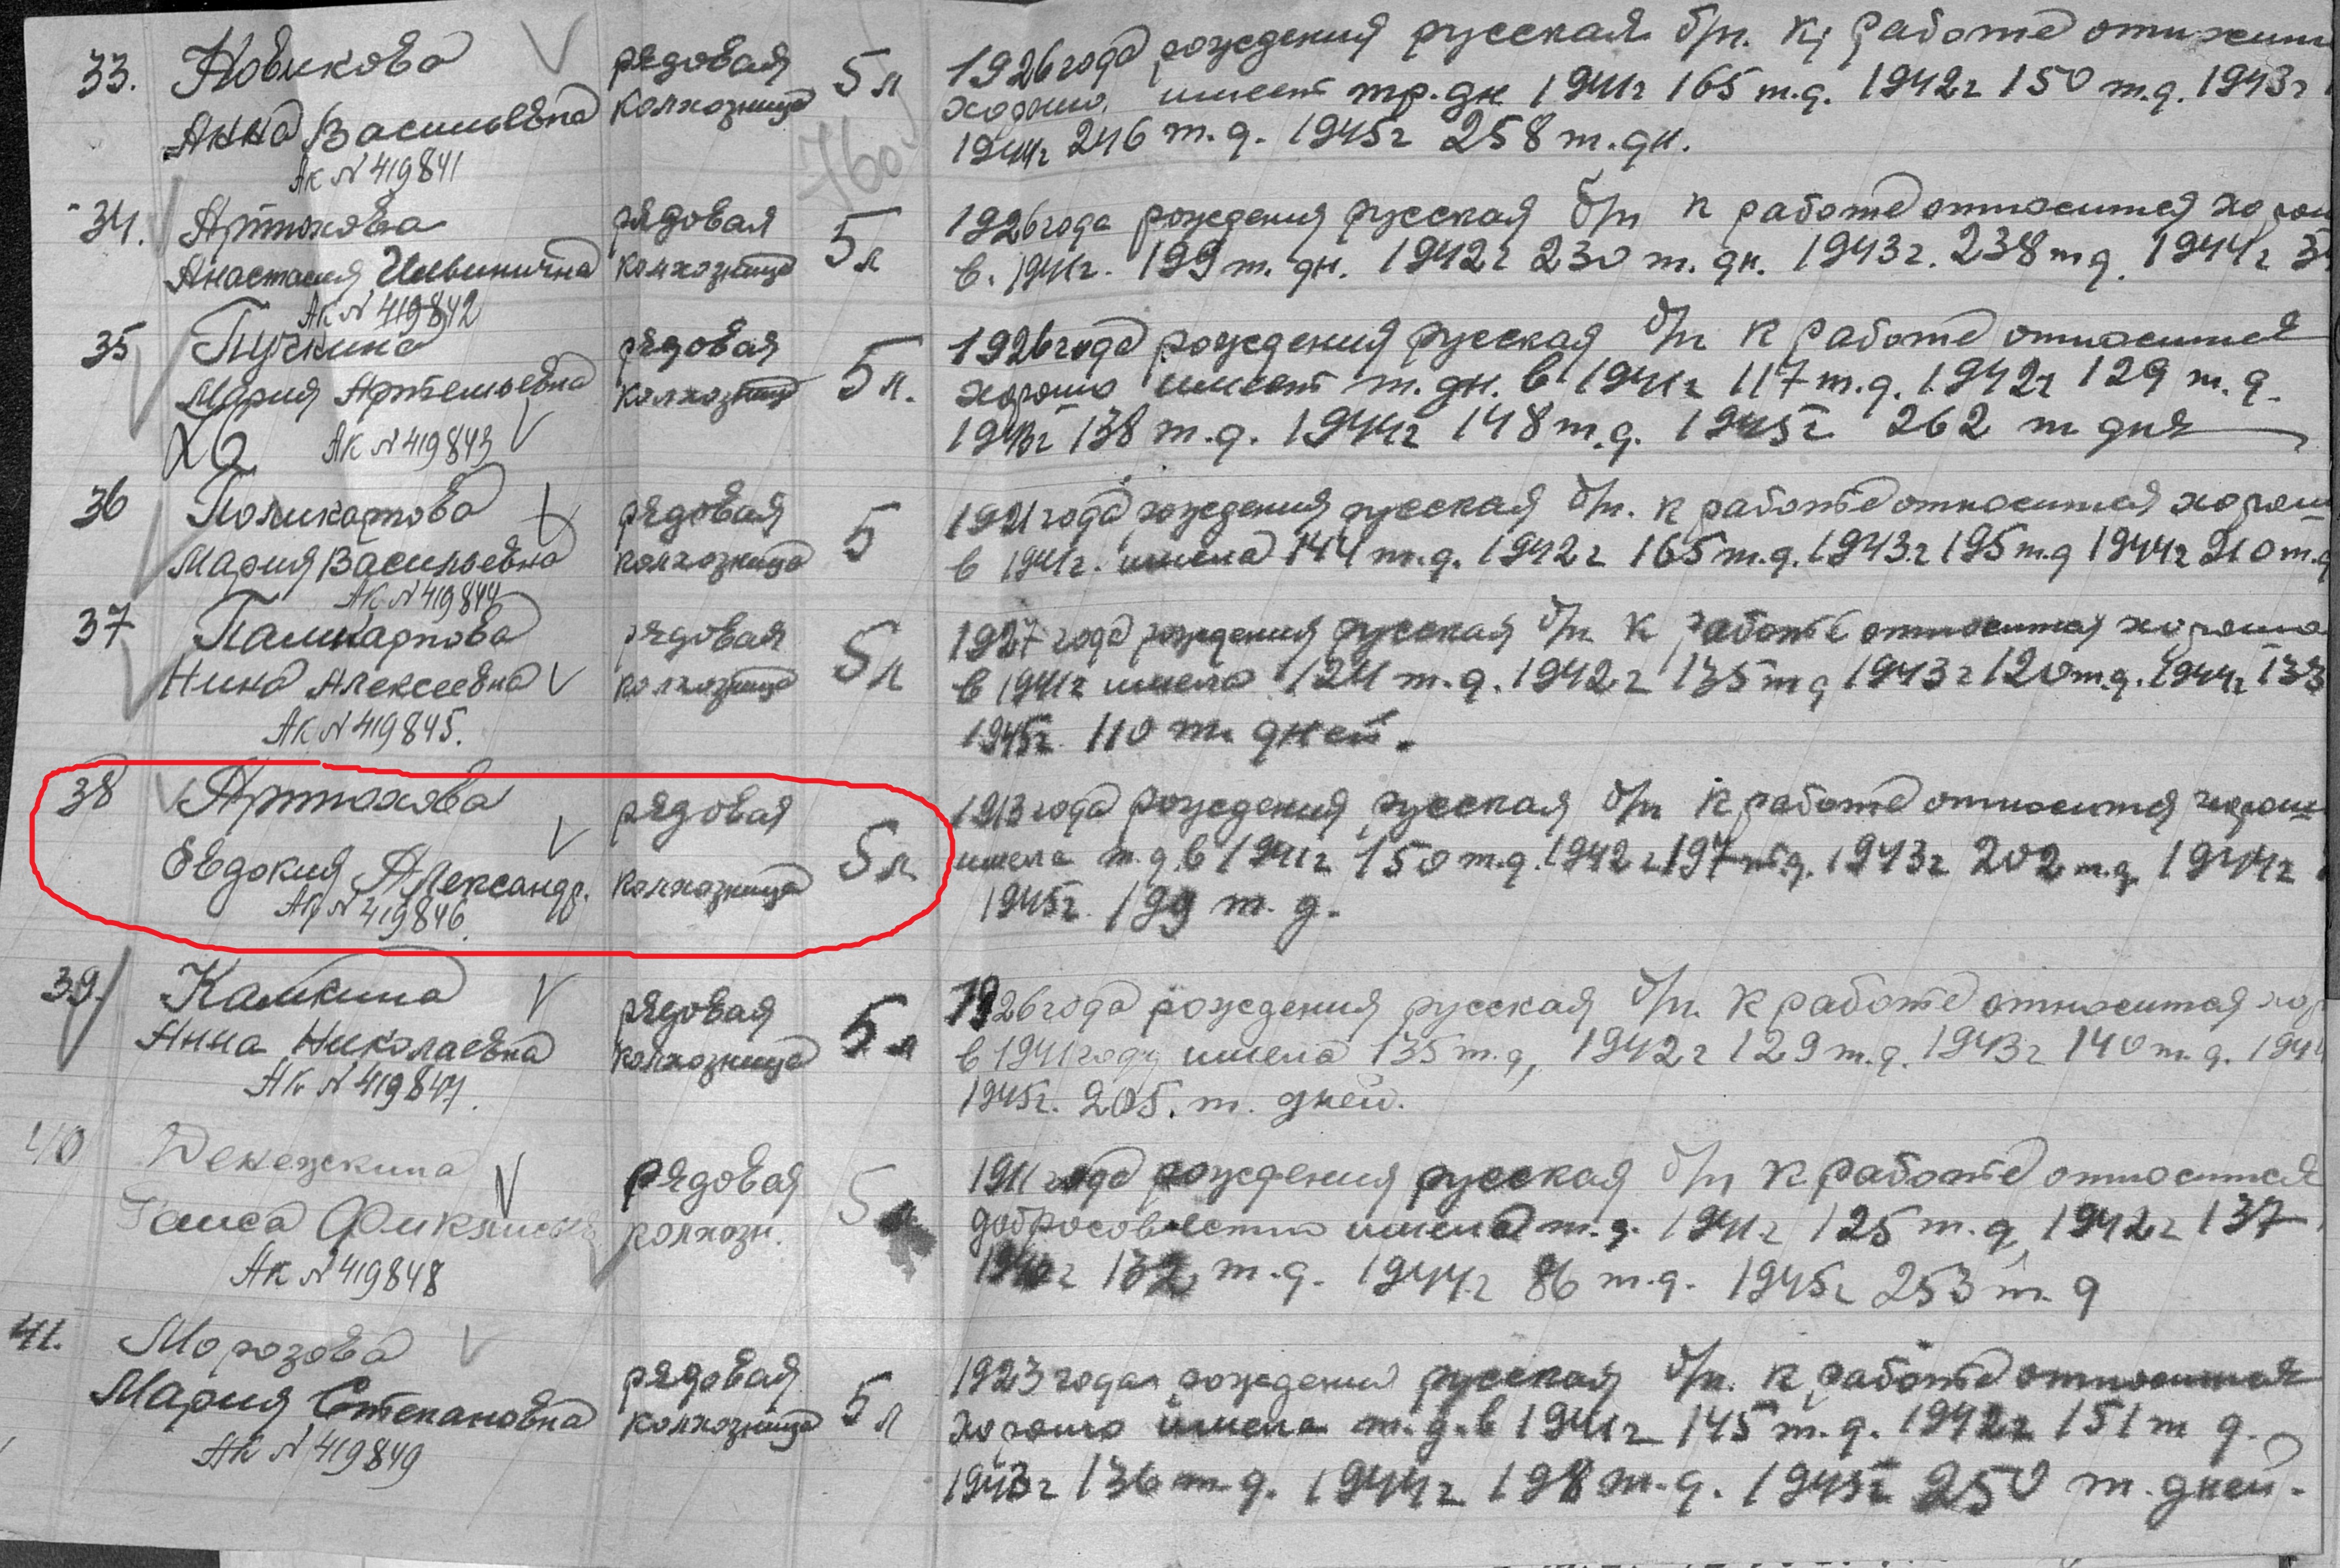 33. Новикова
Анна Васильевна
Ак N 419841
рядовая
колхозница
5 л
1926 года рождения русская б/п. к работе
хорошо имеет тр. дн 1941г 165 т.д. 1942г 150 т.д. 1943г
1944г 246 т.д. 1945г 258 т. дн.
34. Артюхова
Анастасия
Ак N 419842
рядовая
колхозница
5 л
1926 года рождения русская б/п к работе относится
в. 1941г. 199 т. дн. 1942г 230 т. дн. 1943г. 238 т д. 1944г
35 Пучкина
Мария Артемьевна
Ак N 419843
рядовая
5 л.
1926 года рождения русская б/п к работе относится
хорошо имеет т. дн. в 1941г 117 т.д. 1942г 129 т.д.
1943г 138 т.д. 1944г 148 т.д. 1945г 262 т дня
36 Поликарпова
Мария Васильевна
Ак N 419844
рядовая
колхозница
5
1921 года рождения русская б/п. к работе относится
в 1941г. имела 144 т.д. 1942г 165 т.д. 1943г 195 т.д 1944г 210 т.д
37 Паликарпова
Нина Алексеевна
Ак N 419845.
рядовая
колхозница
5 л
1927 года рождения русская б/п к работе относится хорошо
в 1941г имела 124 т.д. 1942г 135 т д 1943г 120 т.д. 1944г 133
1945г. 110 т. дней.
38 Артюхова
Евдокия Александр.
Ак N 419846.
рядовая
колхозница
5 л
1913 года рождения русская б/п к работе относится
имела т.д. в 1941г 150 т.д. 1942г 197 т.д. 1943г 202 т.д 1944г
1945г. 199 т. д.
39. Камкина
Анна Николаевна
Ак N 419847.
рядовая
колхозница
5 л
1926 года рождения русская б/п. к работе относится хор
в 1941 году имела 135 т.д, 1942г 129 т.д. 1943г 140 т.д. 194
1945г. 205. т. дней.
40 Денежкина
Ак N 419848
рядовая
колхозн.
5 л
1911 года рождения русская б/п к работе относится
имела т.д. 1941г 125 т.д, 1942г 137
132 т.д. 1944г 86 т.д. 1945г 253 т. д
41. Морозова
Мария Степановна
Ак N 419849
рядовая
колхозница
5 л
1923 года рождения русская б/п. к работе относится
хорошо имела т.д. в 1941г 145 т.д. 1942г 151 т д.
1943г 136 т.д. 1944г 198 т.д. 1945г 250 т. дней.